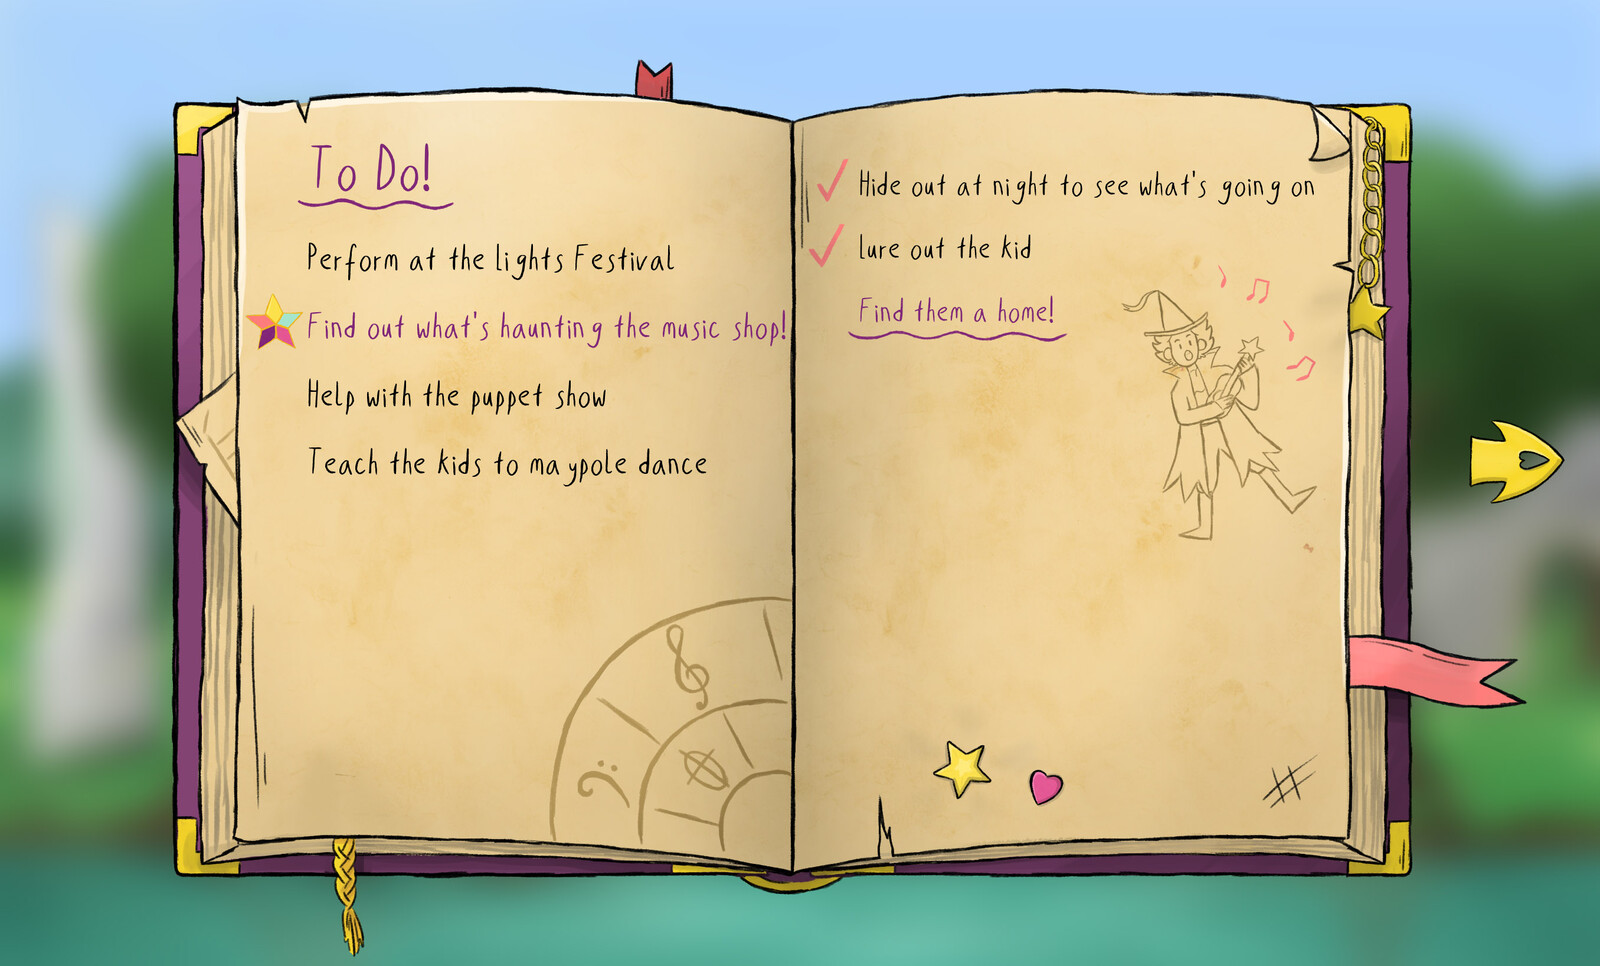 To Do!
Perform at the lights Festival
Find out what's haunting the music shop!
Help with the puppet show
Teach the kids to maypole dance
Hide out at night to see what's going on
lure out the kid
Find them a home!